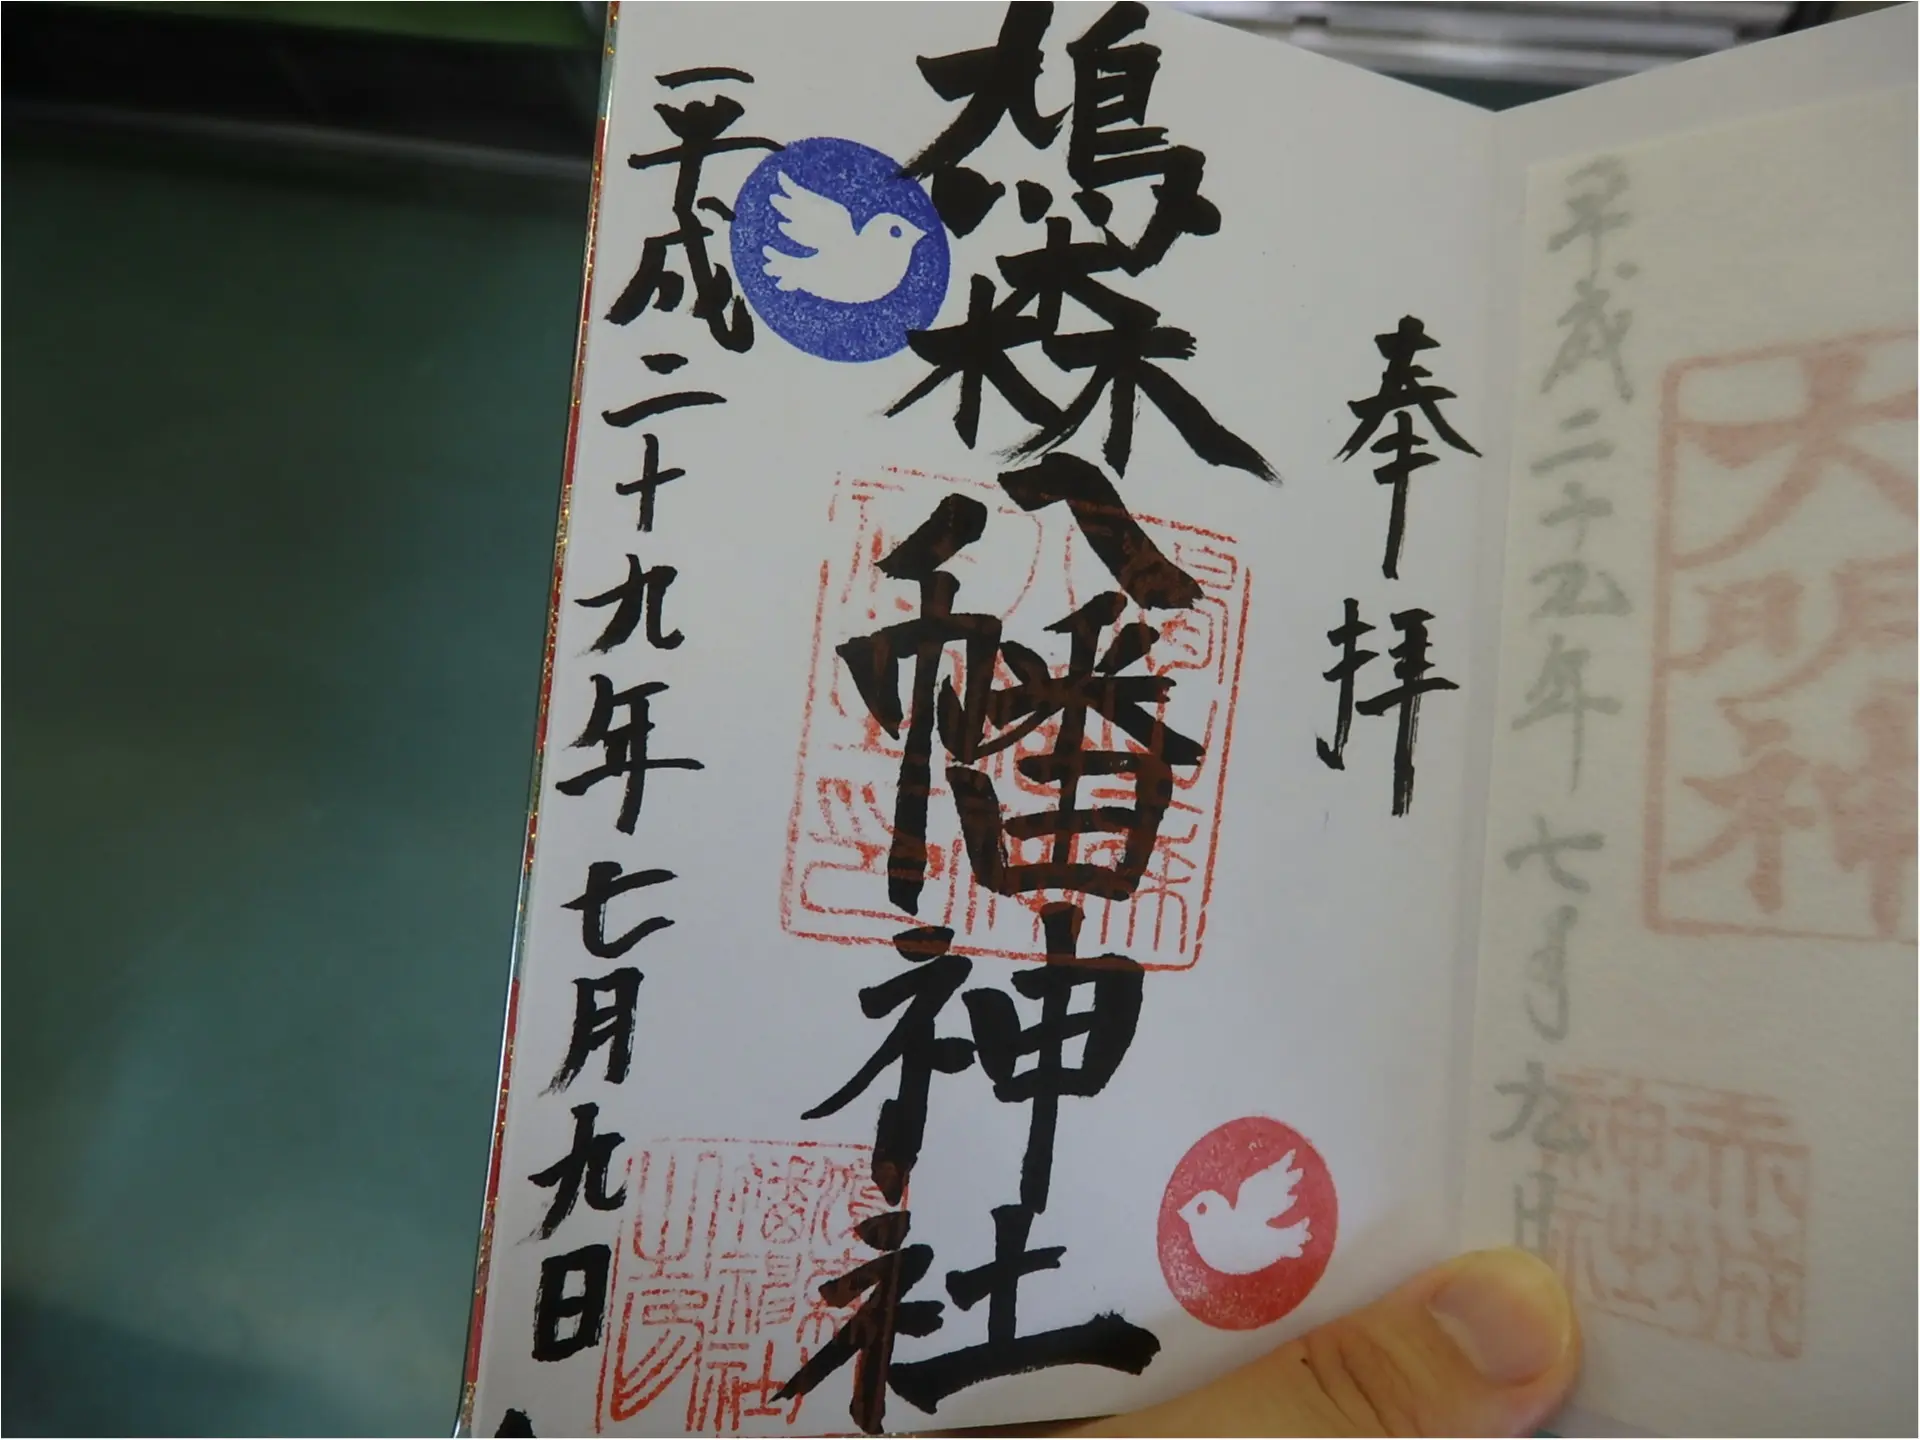 奉拝
鳩森八幡神社
平成二十九年七月九日
大明神
平成二十九年七月九日
赤城神社